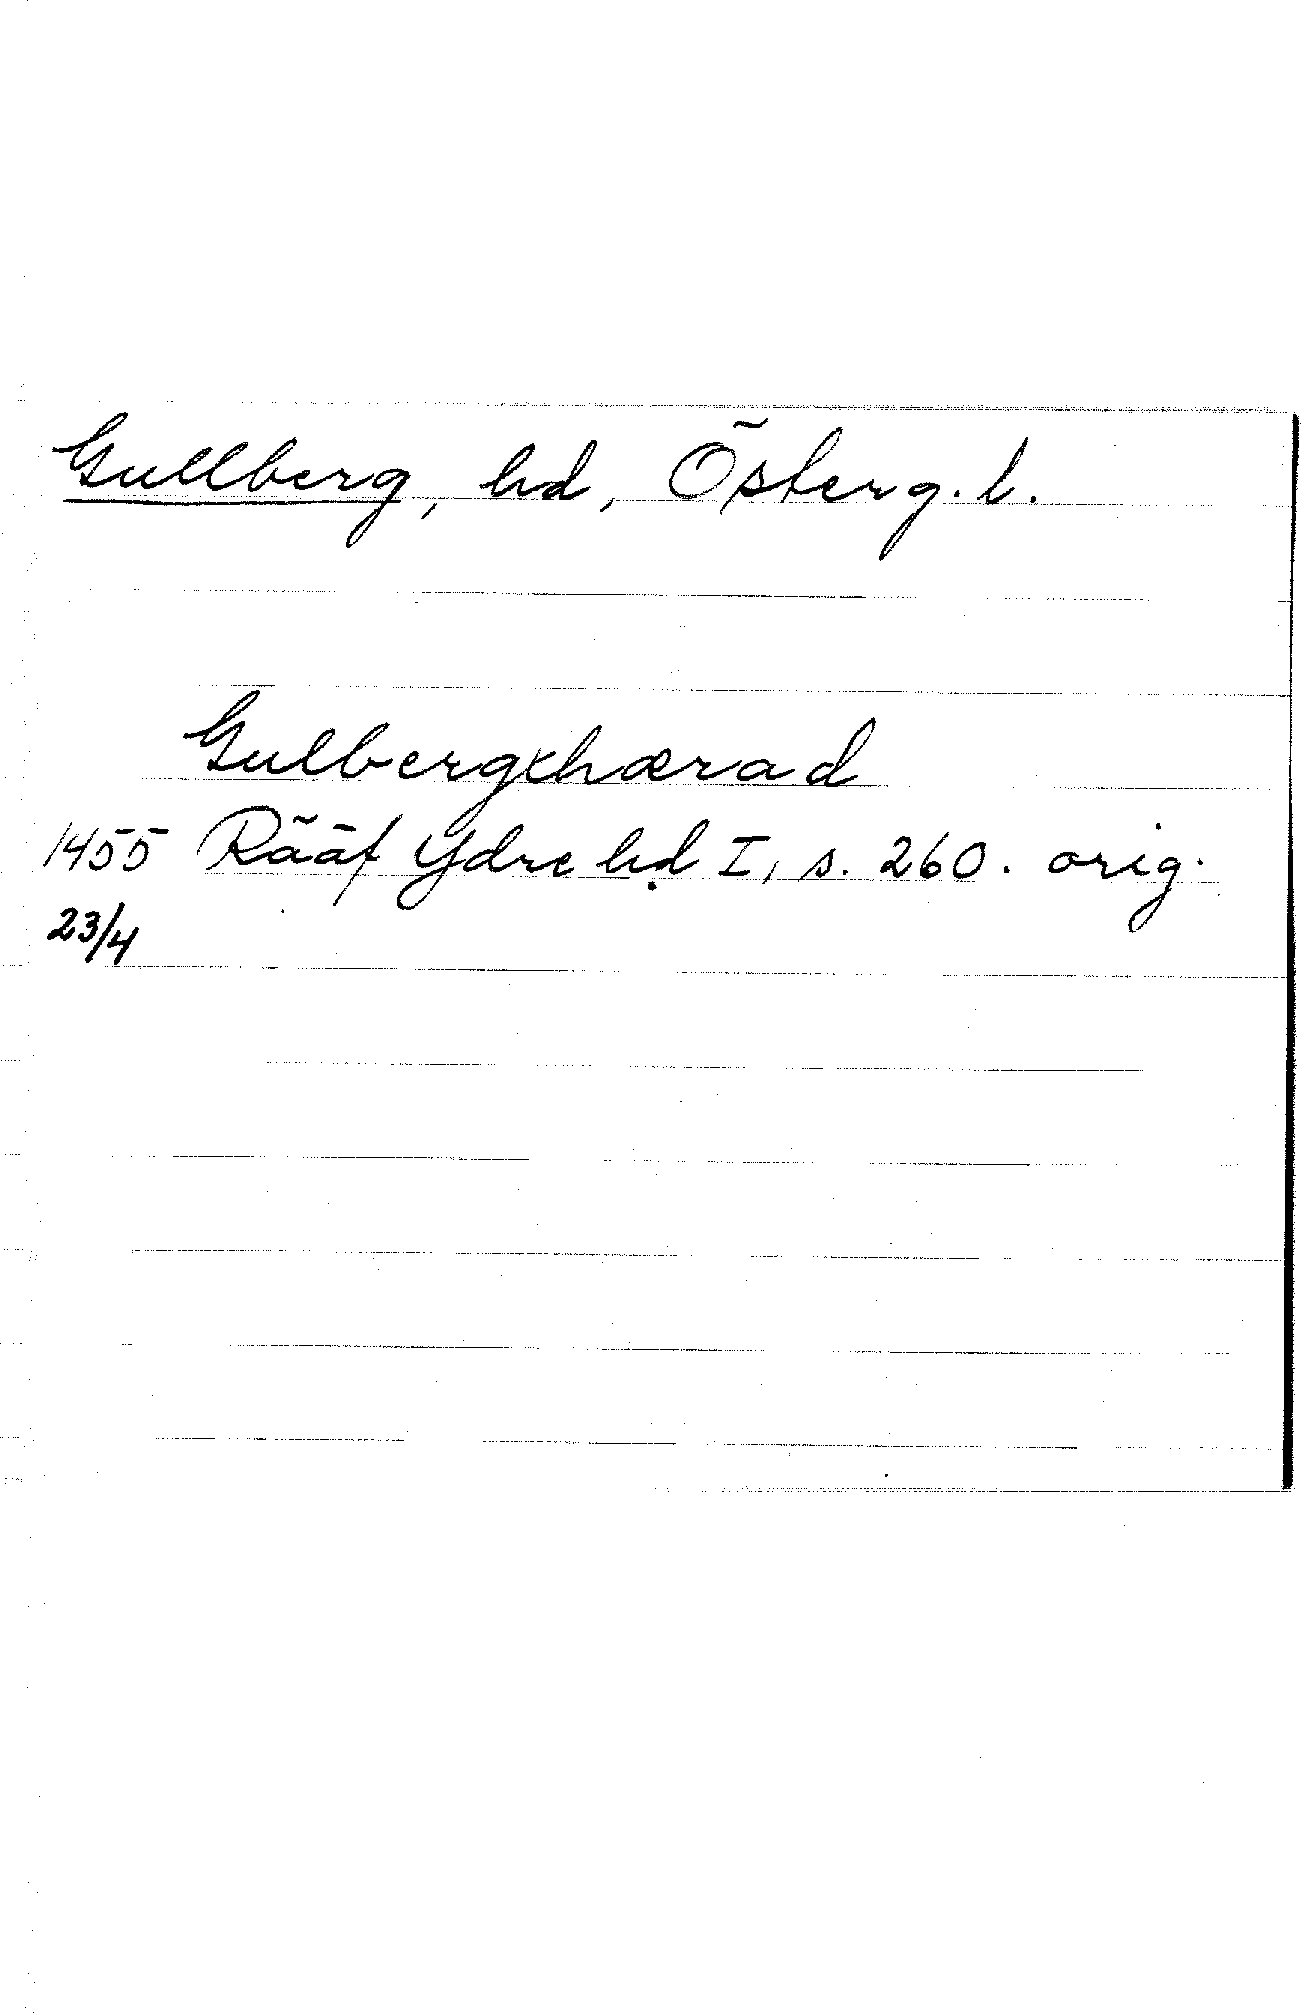 Gullberg, hd, Österg. l.
Gulbergxhærad
1455 Rääf Ydre hd I, s. 260. orig.
23/4